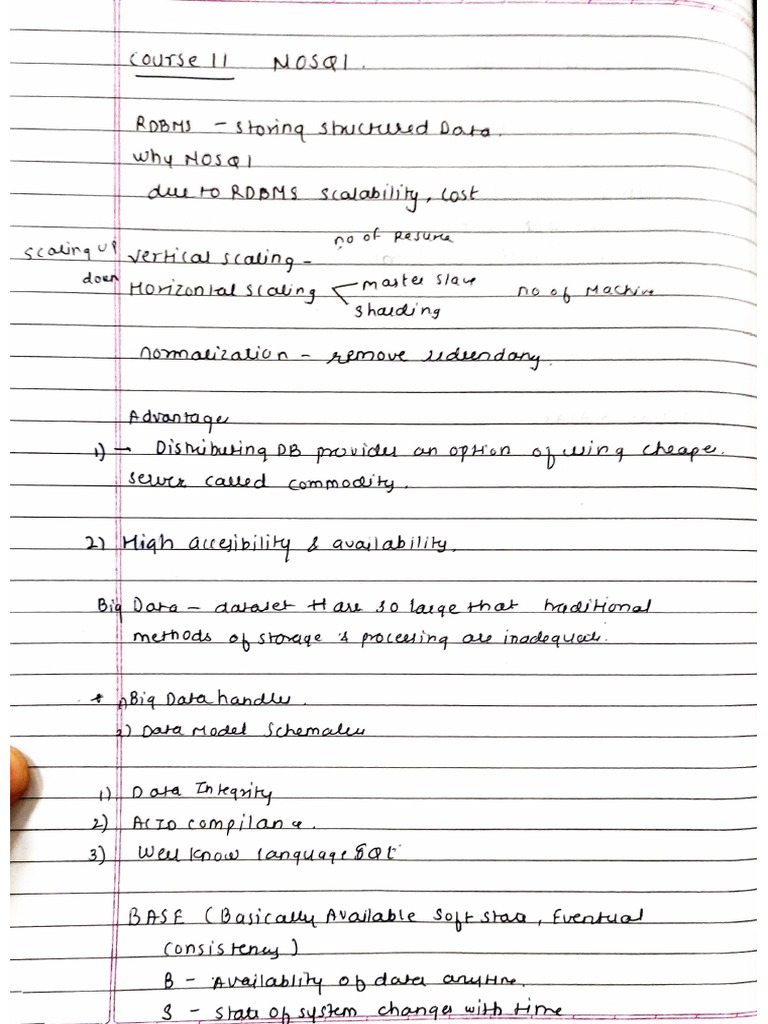 Course 11 NOSQl.
RDBMS - storing structured Data.
Why NOSQl
due to RDBMS scalability, Cost
no of Resurce
Scaling up vertical scaling -
down Horizontal scaling master slave no of Machine
sharding
normalization - remove redendancy.
Advantage
1) - Distributing DB provides an option of using cheape.
server called commodity.
2) High accesibility & availability.
Big Data - dataset that are so large that traditional
methods of storage & processing are inadequate.
* 1) Big Data handles.
2) Data Model Schemaless
1) Data Integrity
2) ACID compilance.
3) Well know language SQL
BASE (Basically Available Soft State, Eventual
Consistency)
B - Availablity of data anytime.
S - state of system changes with time